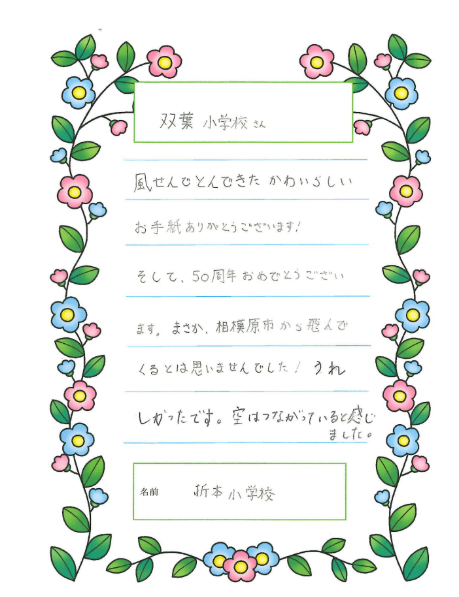 双葉 小学校さん
風せんでとんできた かわいらしい
お手紙ありがとうございます!
そして、50周年おめでとうござい
ます。まさか、相模原市から飛んで
くるとは思いませんでした! うれ
しかったです。空はつながっていると感じ
ました。
名前 折本小学校